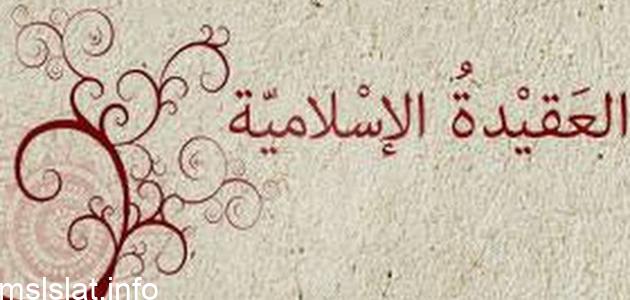 العَقيْدةُ الإسْلاميّة
mslslat.info